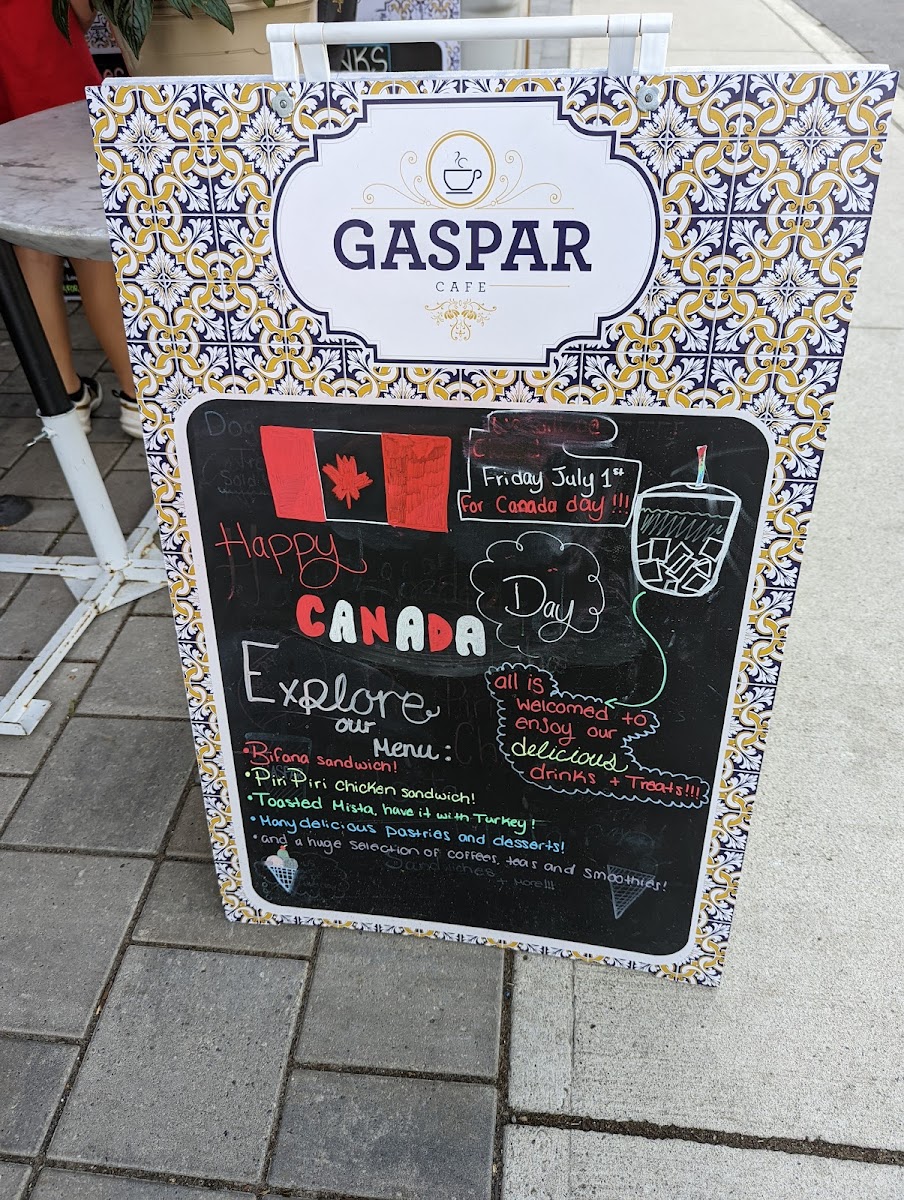 NKS
GASPAR
CAFE
Friday July 1st
For Canada day !!!
Happy
CANADA
Day
Explore
our
Menu:
all is
welcomed to
enjoy our
delicious
drinks + Treats!!!
• Bifana sandwich!
• Piri Piri chicken sandwich!
• Toasted Mista, have it with Turkey!
• Many delicious pastries and desserts!
• and a huge selection of coffees, teas and smoothies!